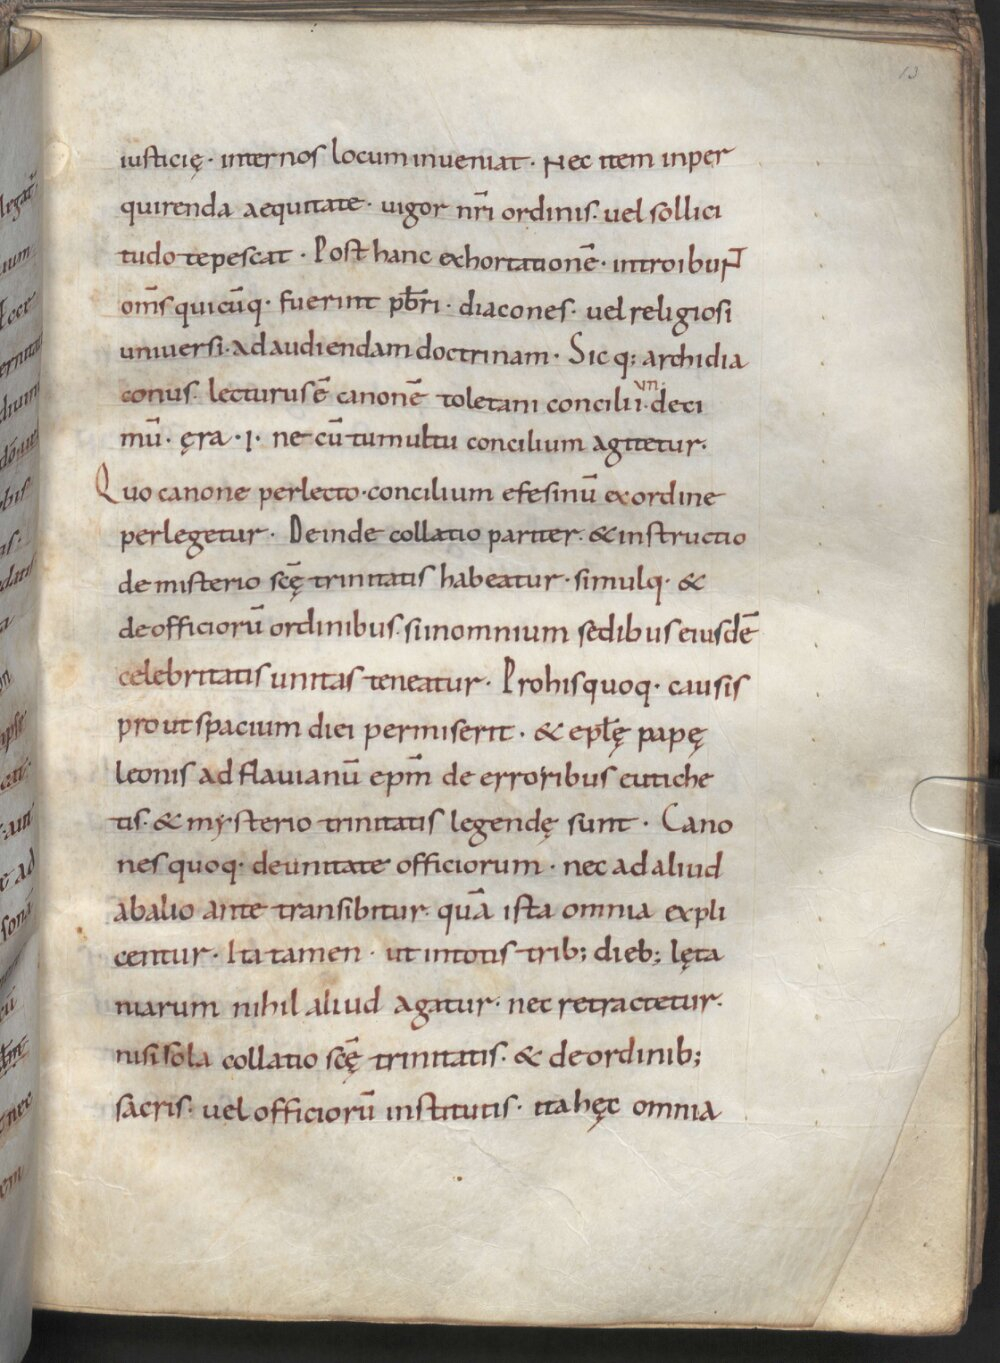 13
iusticię· inter nos locum inueniat· Nec item in per
quirenda aequitate· uigor nr̄i ordinis· uel sollici
tudo tepescat · Post hanc exhortationē· introibunt
om̄s quicūq· fuerint pb̄ri · diacones· uel religiosi
uniuersi· ad audiendam doctrinam · Sicq; archidia
conus· lecturus ē canonē toletani concilii· deci
um·
mū· ęra ·I· ne cū tumultu concilium agitetur·
Quo canone perlecto· concilium efesinū ex ordine
perlegetur · Deinde collatio pariter· & instructio
de misterio scę̄ trinitatis habeatur· simulq· &
de officiorū ordinibus· si in omnium sedibus eiusdē
celebritatis unitas teneatur · Pro his quoq· causis
prout spacium diei permiserit · & ep̄lę papę
leonis ad flauianū ep̄m de erroribus eutiche
tis· & mysterio trinitatis legendę sunt · Cano
nes quoq· de unitate officiorum · nec ad aliud
ab alio ante transibitur· quā ista omnia expli
centur · Ita tamen · ut in totis trib; dieb; lęta
niarum nihil aliud agatur· nec retractetur·
nisi sola collatio scę̄ trinitatis· & de ordinib;
sacris· uel officiorū institutis· ita hęc omnia